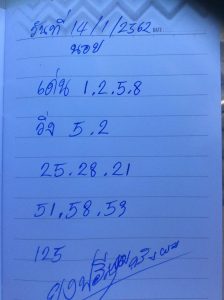 วันที่ 14/1/2562
DATE
นอย
เด่น 1.2.5.8
วิ่ง 5.2
25.28.21
51.58.53
125